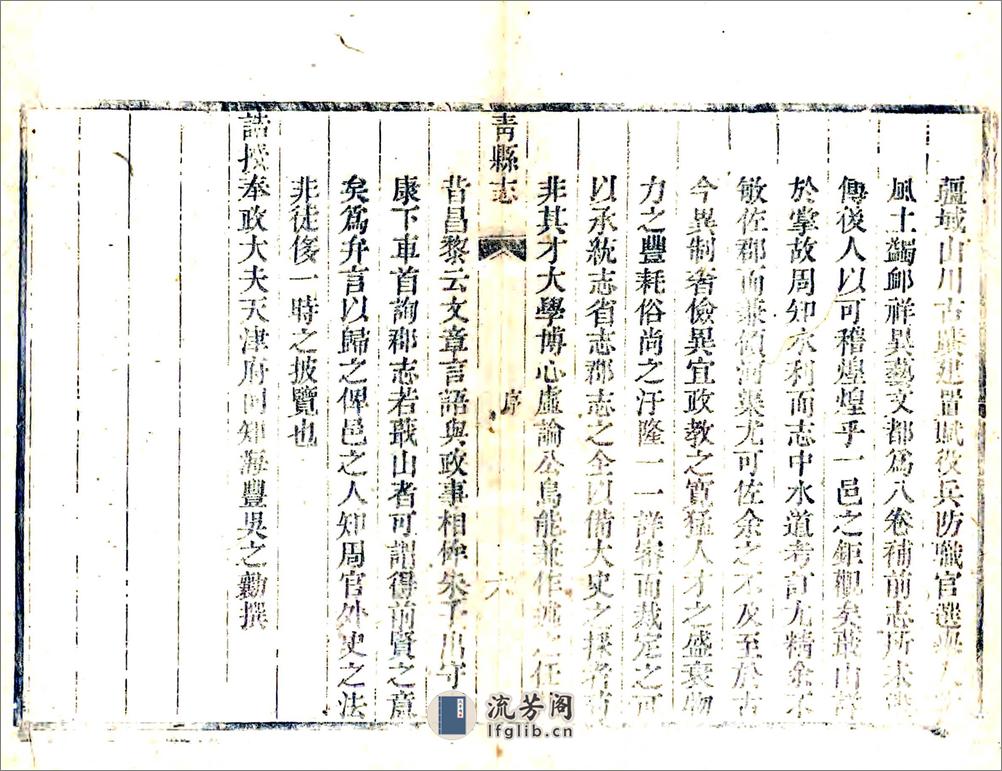 疆域山川古蹟建置賦役兵防職官選舉人
風土蠲卹祥異藝文都爲八卷補前志所未
傳後人以可稽煌煌乎一邑之鉅觀矣戢山
於掌故周知水利而志中水道考訂尤精余不
敏佐郡而兼領河渠尤可佐余之不及至於古
今異制奢儉異宜政教之寬猛人才之盛衰物
力之豐耗俗尚之汙隆一一詳審而裁定之可
以承統志省志郡志之全以備大史之採者
非其才大學博心虛論公烏能兼作述之任
青縣志
序
六
昔昌黎云文章言語與政事相侔朱子出守
康下車首詢郡志若戢山者可謂得前賢之意
矣爲弁言以歸之俾邑之人知周官外史之法
非徒侈一時之披覽也
誥授奉政大夫天津府同知海豐吳之勷撰
流芳阁
lfglib.cn